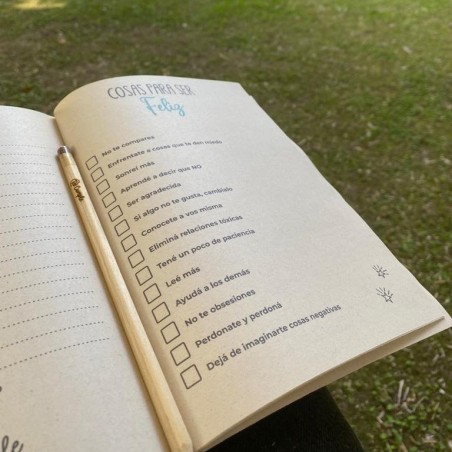 COSAS PARA SER
Feliz
No te compares
Enfrentate a cosas que te den miedo
Sonreí más
Aprendé a decir que NO
Ser agradecida
Si algo no te gusta, cambialo
Conocete a vos misma
Eliminá relaciones tóxicas
Tené un poco de paciencia
Leé más
Ayudá a los demás
No te obsesiones
Perdonate y perdoná
Dejá de imaginarte cosas negativas